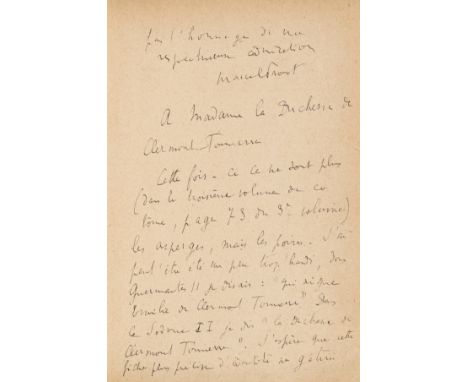 l'hommage de ma
respectueuse admiration
Marcel Proust
A Madame la Duchesse de
Clermont Tonnerre
Cette fois-ci ce ne sont plus
(dans le troisième volume du
tome, page 73 du 3e volume)
les asperges, mais les poires. J'ai
peut'être été un peu trop hardi, dans
Guermantes II je disais : "qu'
Emilie de Clermont Tonnerre" Dans
le Sodome II je dis "la Duchesse de
Clermont Tonnerre". J'espère que cette
plus précise d'identité ne